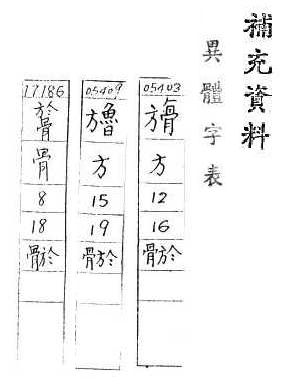 補充資料
異體字表
05403
方
12
16
05409
方
15
19
17186
骨
8
18